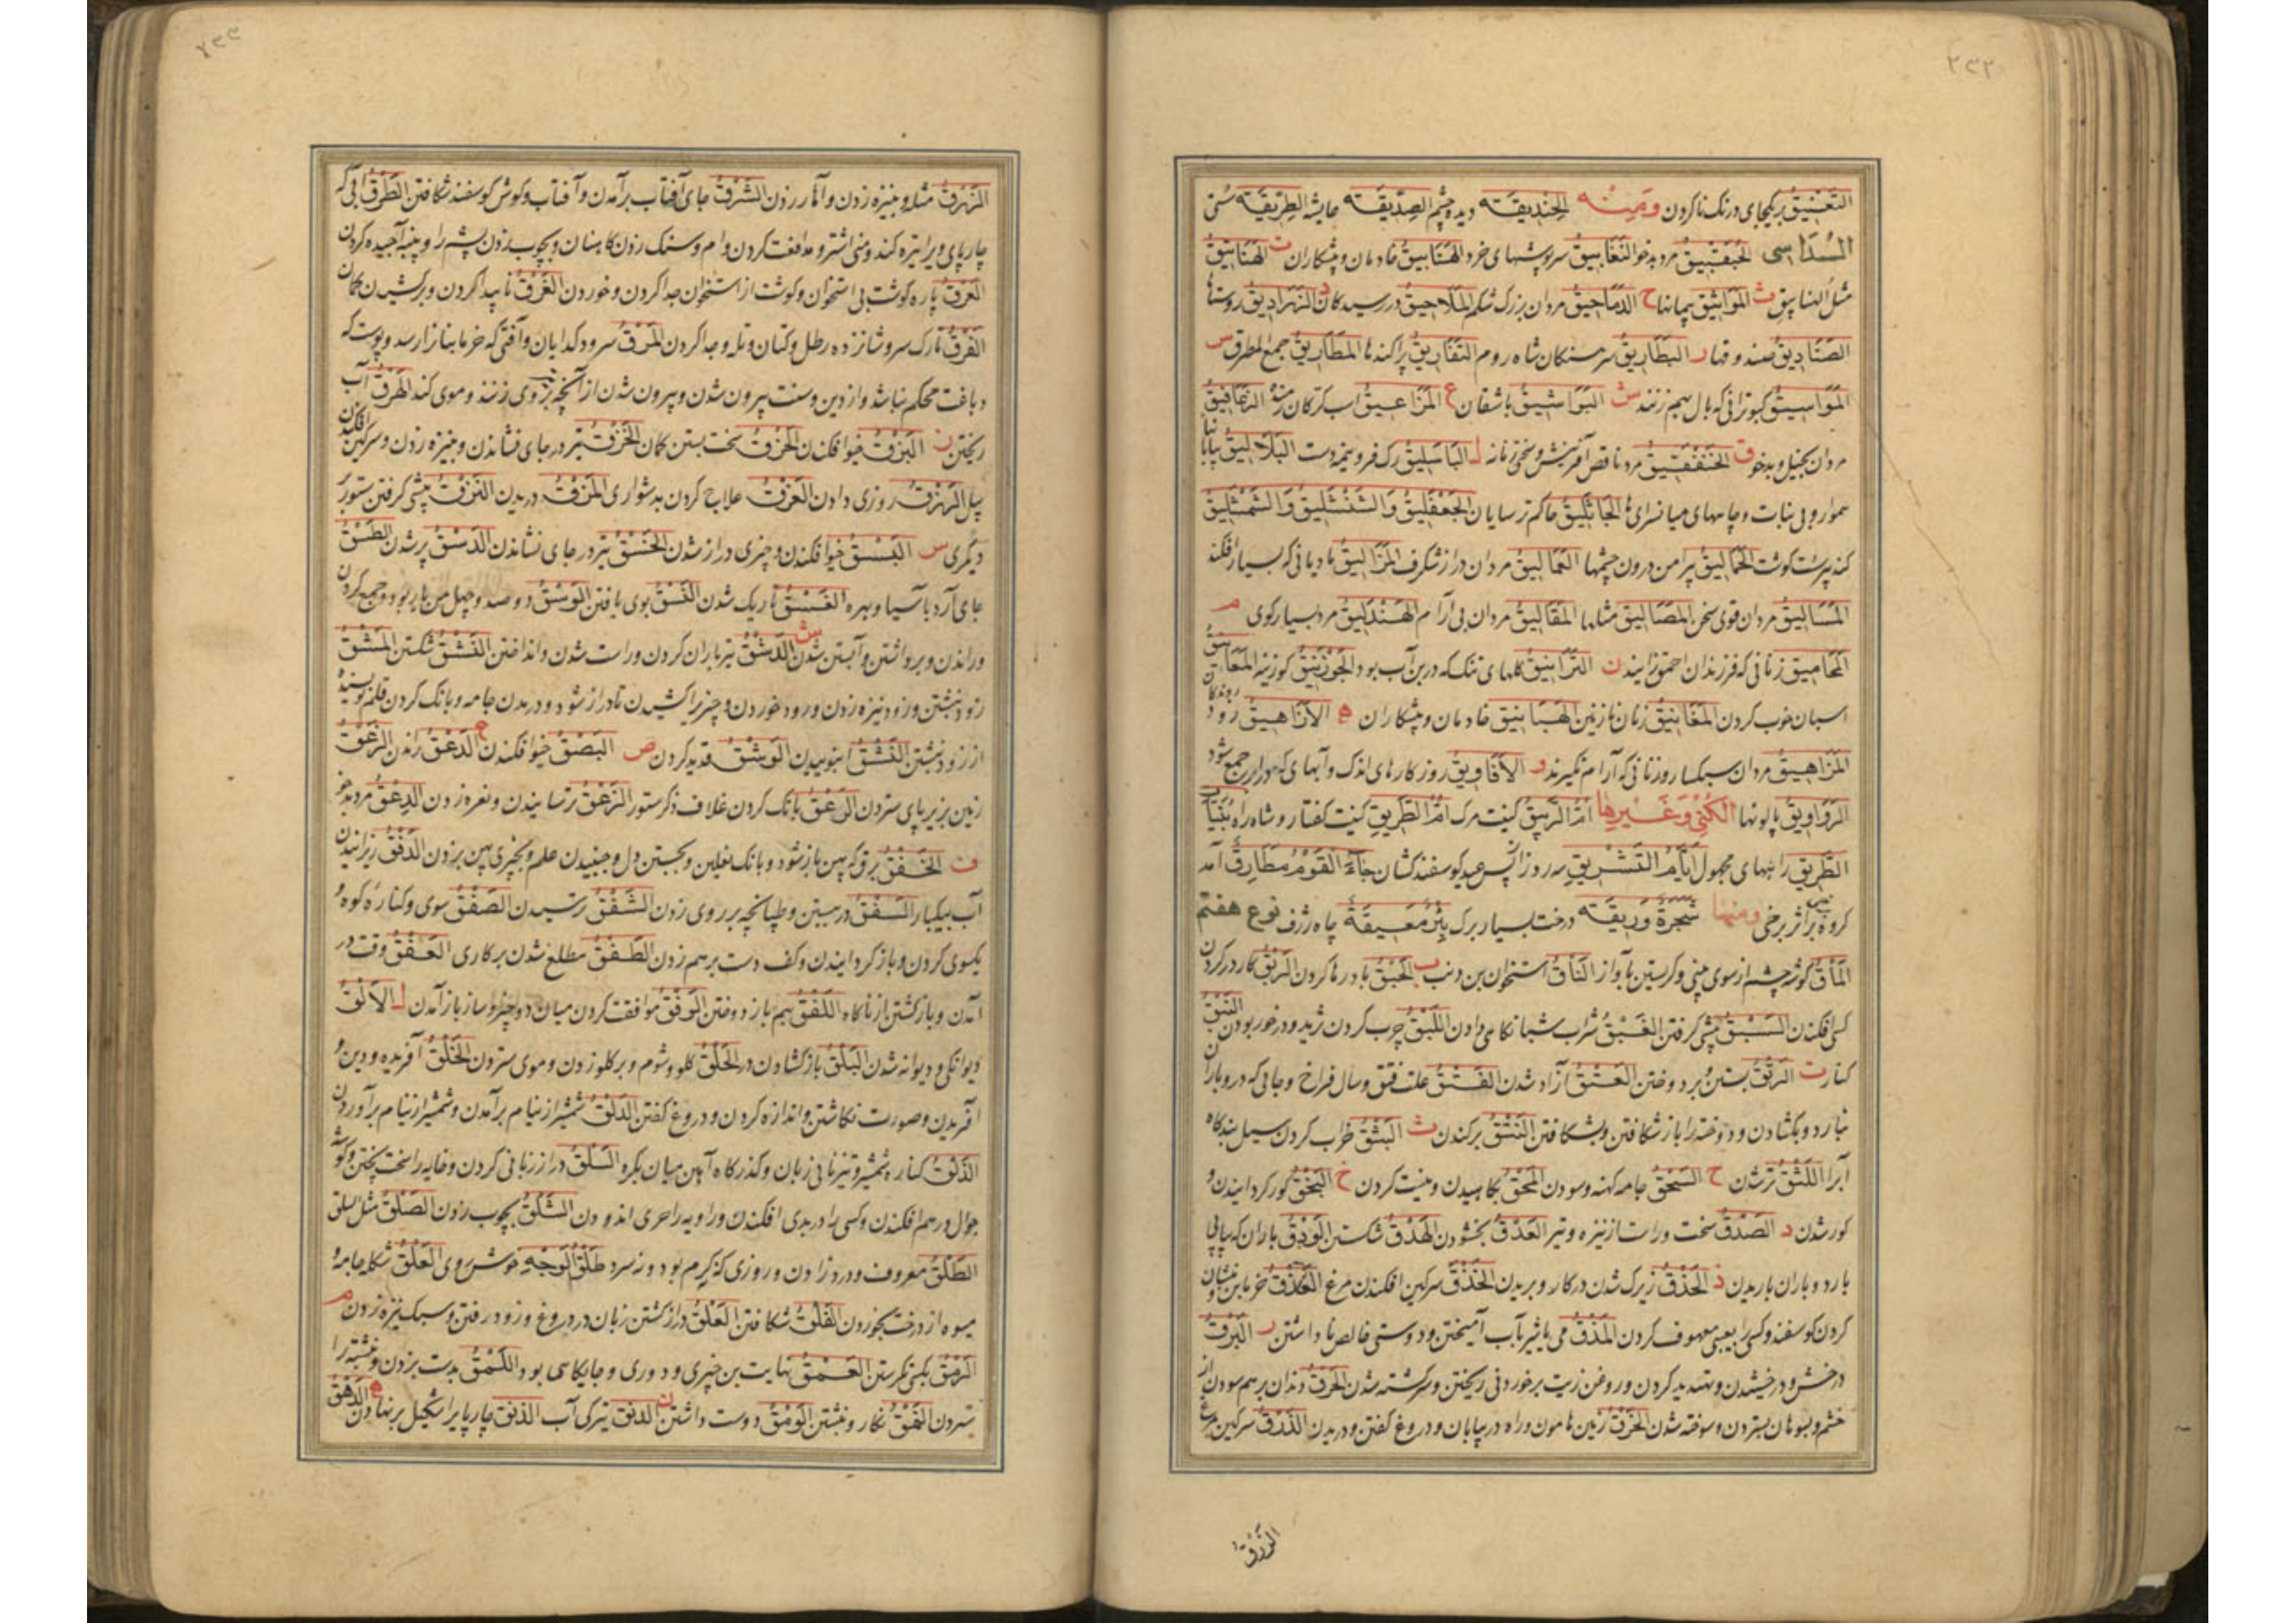 ۲۳۲
التعنیق بریکجای درنک ناکردن ومنه الحندیقة دیده چشم الصدیقة الطریقة
السداسی الحبقبیق مرد بدخو النغابیق سرپوشهای خرد الهنابیق خادمان و پیشکاران ت الهنابیق
ث المواثیق پیمانها ح الدماحیق مردان بزرک شکم الملاحیق دررسیدکان د الزراديق روستاها
الصنادیق صندوقها ر البطاریق سرهنکان شاه روم التفاریق پراکندها المطاریق جمع المطرق س
المواسیق کبوترانی که بال بهم زنند ش البواشیق باشقان ع المزاعیق
مردان بخیل و بدخو ق الخنفقیق مرد ناقص آفرینش و سختی زنانه ل الباسلیق رک فرو نیمه دست البلالیق
هموار و بی نبات و جامهای میانسرای الجاثلیق حاکم ترسایان الجعفلیق والشنشلیق والشمشلیق
کنده پیر سست کوشت الحمالیق پیرامن درون چشمها العمالیق مردان دراز شکرف المزالیق مادیانی که بسیار افکند
المسالیق مردان قوی سخن المصالیق المقالیق مردان بی آرام الهندلیق مرد بسیار کوی م
المحامیق زنانی که فرزندان احمق زایند ن الترانیق کلهای تنک که در بن آب بود الجوزنیق کوزینه المعانیق
اسبان خوب کردن المغانیق زنان نازنین الهبانیق خادمان و پیشکاران ه الازاهیق
المزاهیق مردان سبکسار و زنانی که آرام نکیرند و الافاویق روزکارهای اندک و آبهای که در ابر جمع شود
الرواویق پالونها الکنی وغیرها ام الربیق کنیت مرک ام الطریق کنیت کفتار و شاه راه بنیات
الطریق راههای مجهول ایام التشریق سه روز از پس عید کوسفندکشان جاء القوم مطاریق آمد
کروه بر اثر برخی ومنها شجرة وریقة درخت بسیار برک بئر معیقة چاه ژرف نوع هفتم
الماق کوشه چشم از سوی بینی و کریستن باواز الناق استخوان بن دنب ب الحبق باد رها کردن الربق کار در کردن
کسی افکندن السبق پیشی کرفتن الغبق شراب شبانکاهی دادن اللبق چرب کردن ثرید و درخور بودن النبق
کنار ت الرتق بستن و بردوختن العتق آزاد شدن الفتق علت فتق و سال فراخ و جایی که درو باران
نبارد و بکشادن و دوخته را باز شکافتن و بشکافتن النتق برکندن ث البثق خراب کردن سیل بندکاه
آب را اللثق تر شدن ح السحق جامه کهنه و سودن المحق بکاهیدن و نیست کردن خ البخق کور کردانیدن و
کور شدن د الصدق سخت و راست از نیزه و تیر العدق الهدق شکستن الودق باران که پیاپی
بارد و باران باریدن ذ الحذق زیرک شدن در کار و بریدن الخذق سرکین افکندن مرغ العذق خرمابن و نشان
کردن کوسفند و کسی را بعیبی معروف کردن المذق می یا شیر بآب آمیختن و دوستی خالص ناداشتن ر البرق
درخش و درخشیدن و تهدید کردن و روغن زیت بر خوردنی ریختن و سرکشته شدن الحرق دندان بر هم سودن از
خشم و بسوهان بستردن و سوخته شدن الخرق زمین هامون و راه در بیابان و دروغ کفتن و دریدن الذرق سرکین مرغ
الزرق
۲۳۳
الزرق مثله و بنیزه زدن الشرق جای آفتاب برآمدن و آفتاب و کوش کوسفند شکافتن الطرق آبی که
چارپای ویرا تیره کند و منی اشتر و مدافعت کردن و سنک زدن کاهنان و بچوب زدن پشم را و پنبه آجیده کردن
العرق پاره کوشت بی استخوان و کوشت از استخوان جدا کردن و خوردن الغرق ناپیدا کردن و برکشیدن کمان
الفرق تارک سر و شانزده رطل و کتان و تله و جدا کردن المرق سرود کدایان و آفتی که خرما بنان را رسد و پوست که
دباغت محکم نباشد و از دین و سنت بیرون شدن و بیرون شدن از آنچه بر وی زنند و موی کند الهرق آب
ریختن ز البزق خیو افکندن الحزق سخت بستن کمان الخزق تیر در جای نشاندن و بنیزه زدن و سرکین افکندن
الرزق روزی دادن العزق علاج کردن بدشواری المزق دریدن النزق پیشی کرفتن ستور
دیکری س البسق خیو افکندن و چیزی دراز شدن الخسق تیر در جای نشاندن الدسق پر شدن الطسق
جای آرد بآسیا و بهره الغسق تاریک شدن النسق بوی یافتن الوسق دوصد و چهل من بار بود و جمع کردن
و راندن و برداشتن و آبستن شدن ش الدشق تیرباران کردن و راست شدن و انداختن القشق شکستن المشق
زود نبشتن و زود نیزه زدن و زود خوردن و چیز برا کشیدن تا دراز شود و دریدن جامه و بانک کردن قلم نویسنده
از زود نبشتن النشق انبوییدن الوشق قدید کردن ص البصق خیو افکندن ع الدعق راندن الزعق
زمین بزیر پای ستردن الوعق بانک کردن غلاف ذکر ستور الزعق ترسانیدن و نعره زدن الدعق مرد بدخو
ف الخفق برق که پهن باز شود و بانک نعلین و بجستن دل و جنبیدن علم و بچیزی پهن بزدن الدفق ریزانیدن
آب بیکبار السفق در ببستن و طپانچه بر روی زدن الشفق ترسیدن الصفق سوی و کناره کوه و
یکسوی کردن و باز کردانیدن و کف دست بر هم زدن الطفق مطلع شدن بر کاری العفق وقت در
آمدن و باز کشتن از ناکاه اللفق بهم باز دوختن الوفق موافقت کردن میان دو چیز و ساز باز آمدن ل الالق
دیوانکی و دیوانه شدن البلق باز کشادن در الحلق کلو و شوم و بر کلو زدن و موی ستردن الخلق آفریده و دین و
آفریدن و صورت نکاشتن و اندازه کردن و دروغ کفتن الدلق شمشیر از نیام برآمدن و شمشیر از نیام برآوردن
الذلق کناره شمشیر و تیزنای زبان و کذرکاه آهن میان بکره السلق دراززبانی کردن و خایه را سخت پختن و کوشه
جوال در هم افکندن و کسی را در بدی افکندن و راویه را چربی اندودن الشلق بچوب زدن الصلق مثل السلق
الطلق معروف و درد زادن و روزی که نه کرم بود و نه سرد طلق الوجه خوش روی العلق شکله جامه و
میوه از درخت بخوردن الفلق شکافتن العلق دراز کشتن زبان در دروغ و زود رفتن و سبک نیزه زدن م
الرمق بکنی نکریستن العمق نهایت بن چیزی و دوری و جایکاهی بود اللمق بدست بزدن و نبشته را
ستردن النمق نکار و نبشتن الومق دوست داشتن ن الدنق تیرکی آب الذنق چارپا را شکیل بر نهادن ه الدهق